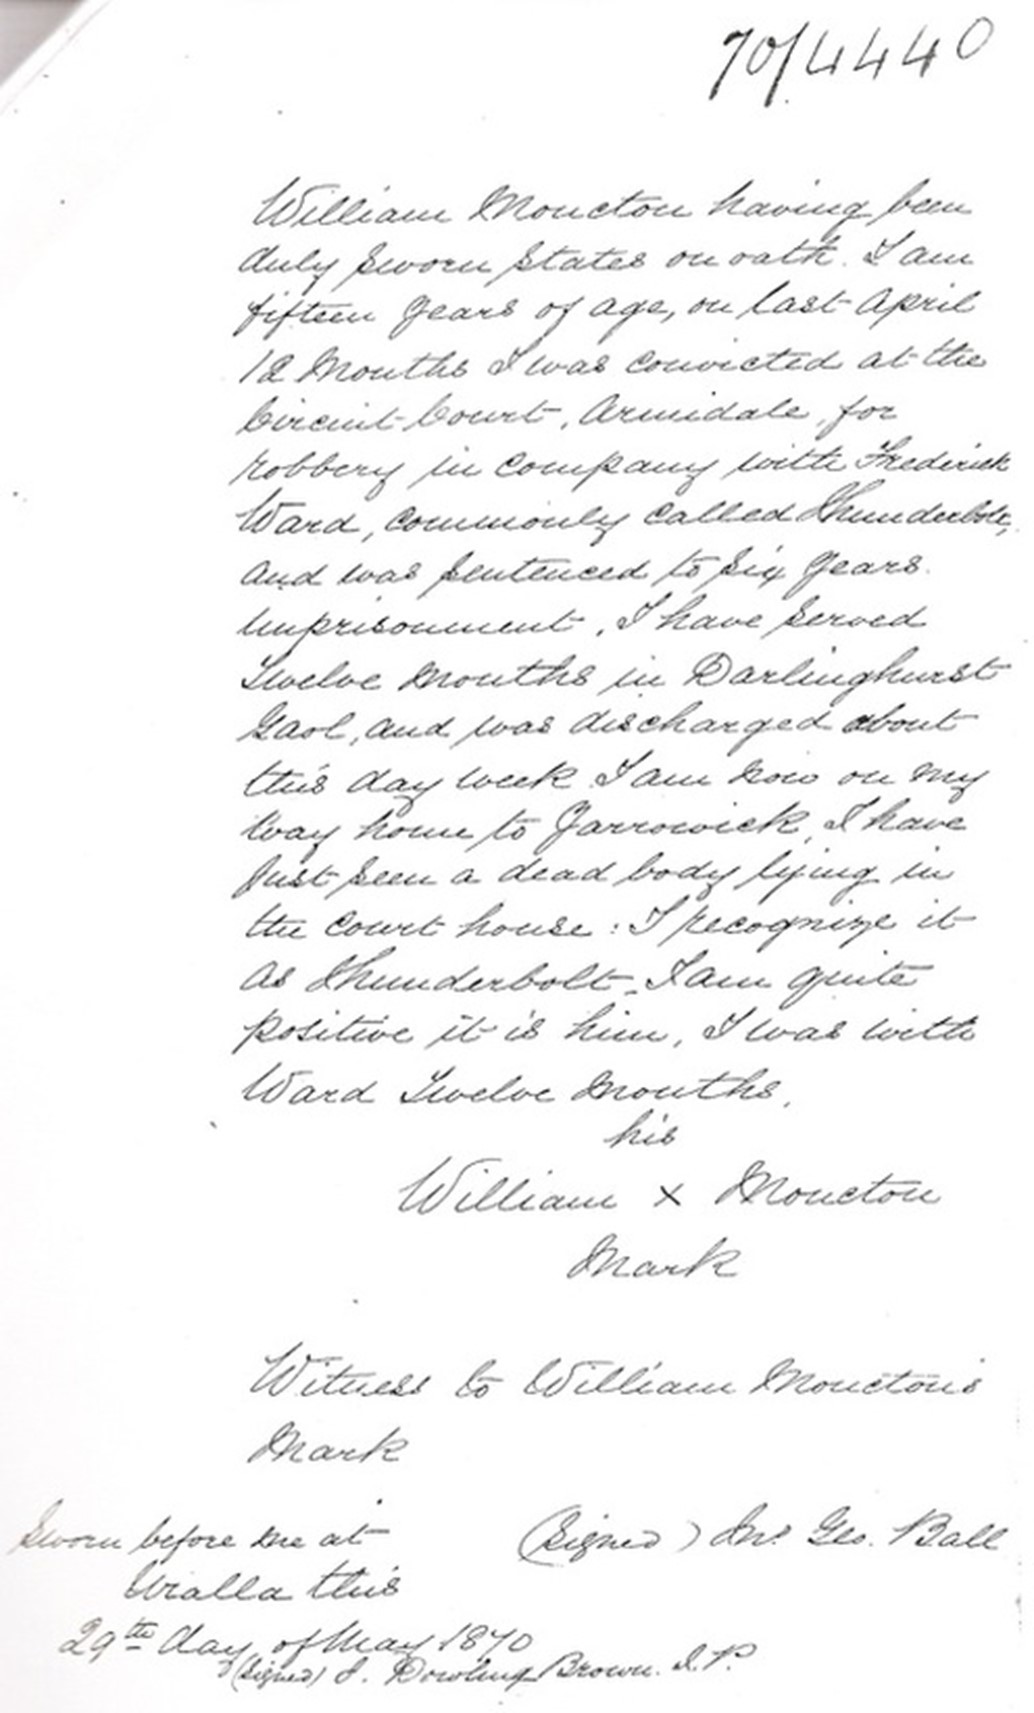 70/4440
William Moncton having been
duly sworn states on oath. I am
fifteen years of age, on last April
12 Months I was convicted at the
Circuit Court, Armidale, for
robbery in company with Frederick
Ward, commonly called Thunderbolt,
and was sentenced to six years
imprisonment. I have served
Twelve Months in Darlinghurst
Gaol, and was discharged about
this day week. I am now on my
way home to Yarrowick, I have
just seen a dead body lying in
the court house: I recognize it
as Thunderbolt. I am quite
positive it is him, I was with
Ward Twelve Months.
his
William x Moncton
Mark
Witness to William Moncton's
Mark
Sworn before me at
(signed) Geo. Ball
Uralla this
29th day of May 1870
(signed) Dowling Brown. J.P.